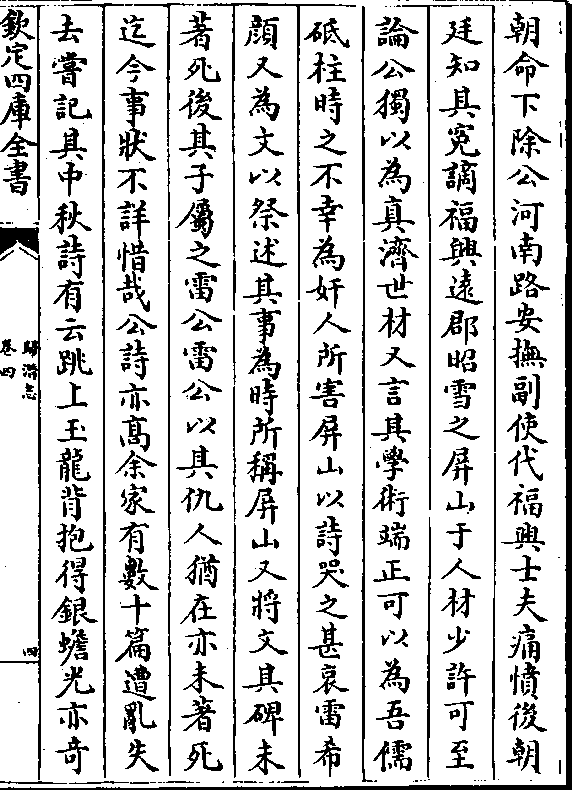 朝命下除公河南路安撫副使代福興士夫痛憤後朝
廷知其寃謫福興遠郡昭雪之屏山于人材少許可至
論公獨以為真濟世材又言其學術端正可以為吾儒
砥柱時之不幸為奸人所害屏山以詩哭之甚哀雷希
顔又為文以祭述其事為時所稱屏山又將文其碑未
著死後其子屬之雷公雷公以其仇人猶在亦未著死
迄今事狀不詳惜哉公詩亦髙余家有數十篇遭亂失
去嘗記其中秋詩有云跳上玉龍背抱得銀蟾光亦竒
欽定四庫全書
歸潛志
卷四
四